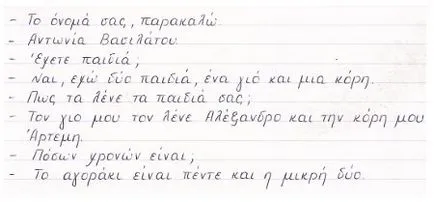 - Το όνομά σας, παρακαλώ.
- Αντωνία Βασιλάτου.
- Έχετε παιδιά;
- Ναι, εχώ δύο παιδιά, ένα γιό και μια κόρη.
- Πως τα λένε τα παιδιά σας;
- Τον γιο μου τον λένε Αλέξανδρο και την κόρη μου
Άρτεμη.
- Πόσων χρονών είναι;
- Το αγοράκι είναι πέντε και η μικρή δύο.